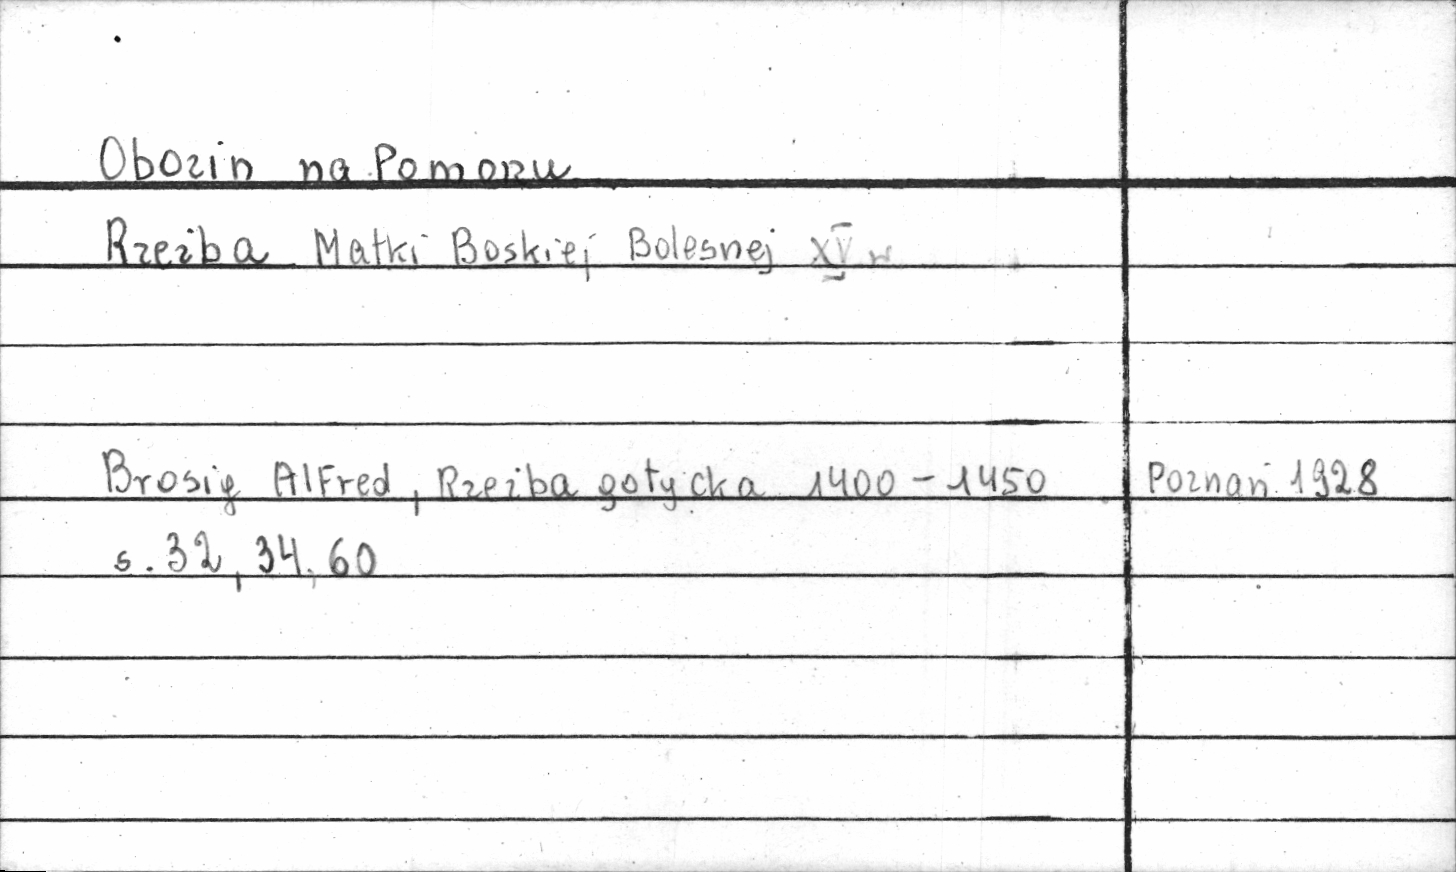 Obozin na Pomorzu
Rzezba Matki Boskiej Bolesnej XV w
Brosig Alfred, Rzezba gotycka 1400-1450 Poznań 1928
s. 32, 34, 60